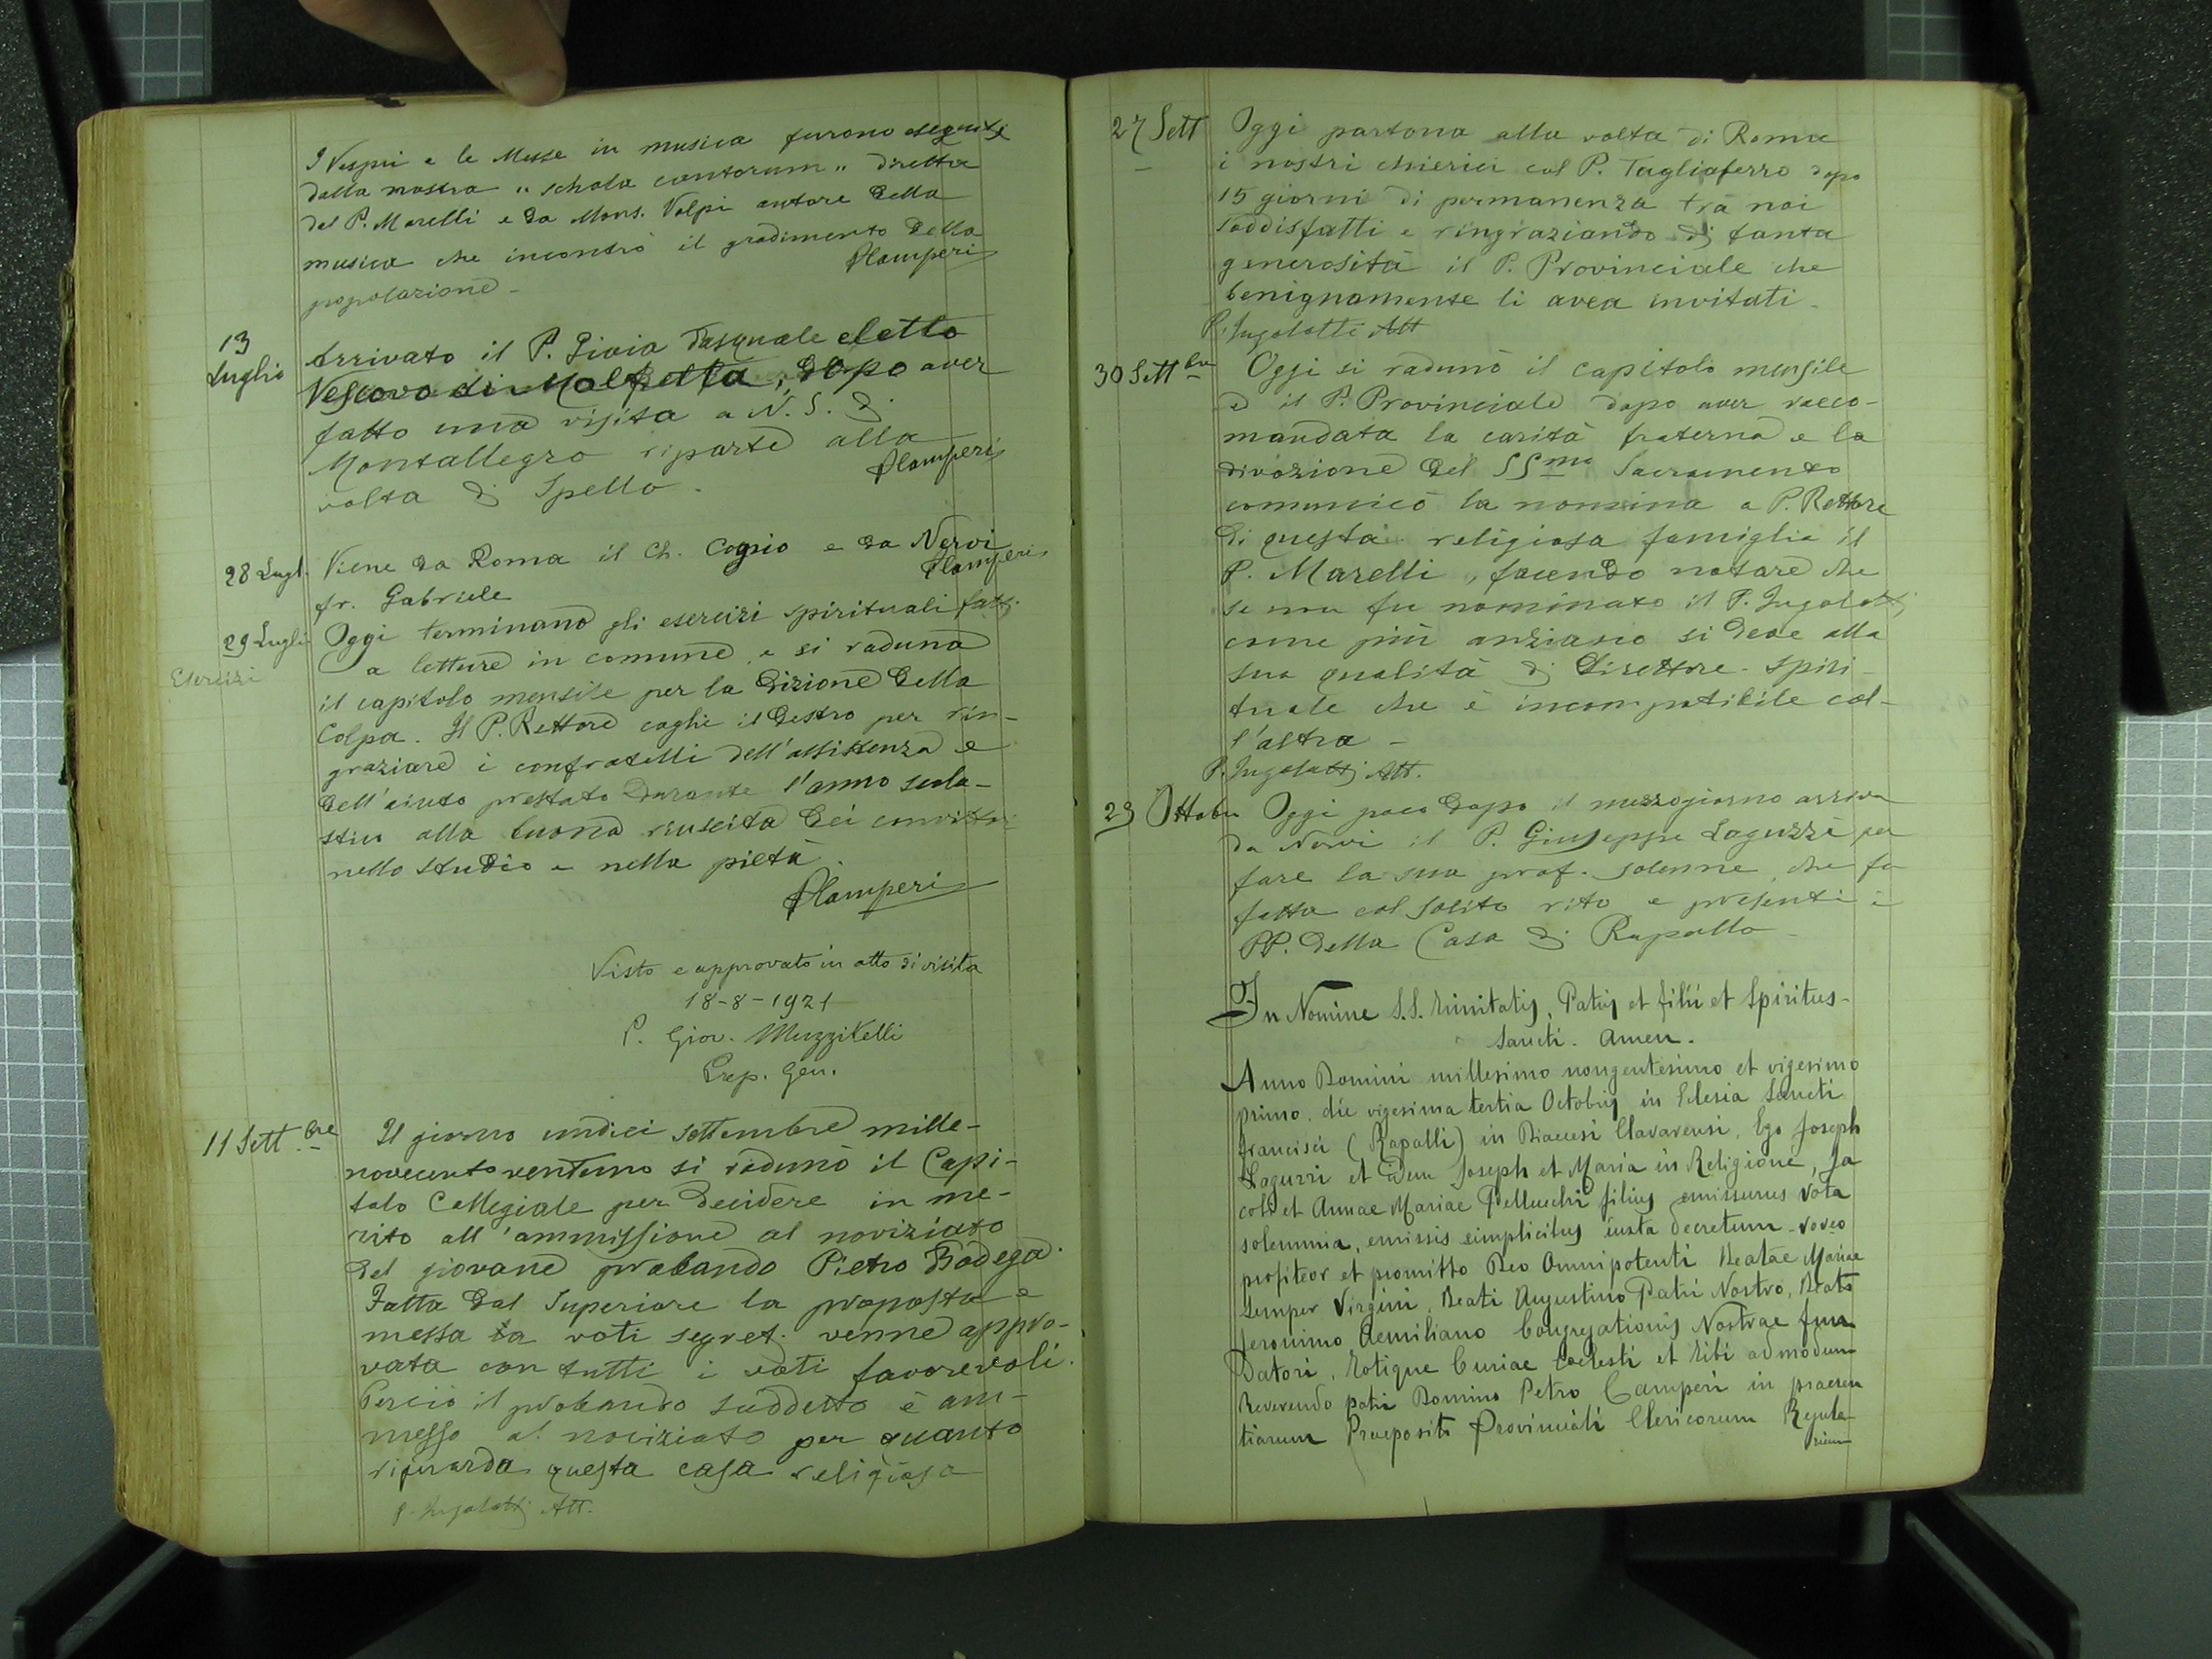 I Vespri e le Messe in musica furono eseguiti
dalla nostra "schola cantorum" diretta
dal P. Marelli e da Mons. Volpi autore della
musica che incontrò il gradimento della
popolazione -
PCamperi
13
Luglio
Arrivato il P. Gioia Pasquale eletto
Vescovo di Molfetta, dopo aver
fatto una visita a N. S. di
Montallegro riparte alla
volta di Spello.
PCamperi
28 Lugl.
Viene da Roma il Ch. Coppio e da Nervi
fr. Gabriele
PCamperi
29 Luglio
Esercizi
Oggi terminano gli esercizi spirituali fatti
a letture in comune, e si raduna
il capitolo mensile per la dizione della
Colpa. Il P. Rettore coglie il destro per rin-
graziare i confratelli dell'assistenza e
dell'aiuto prestato durante l'anno scola-
stico alla buona riuscita dei convittori
nello studio e nella pietà.
PCamperi
Visto e approvato in atto di visita
18-8-1921
P. Giov. Muzzitelli
Prep. Gen.
11 Sett.bre
Il giorno undici settembre mille-
novecentoventuno si radunò il Capi-
tolo Collegiale per decidere in me-
rito all'ammissione al noviziato
del giovane probando Pietro Bodega.
Fatta dal Superiore la proposta e
messa ta voti segret. venne appro-
vata con tutti i voti favorevoli.
Perciò il probando suddetto è am-
messo al noviziato per quanto
riguarda questa casa religiosa
P. Ingolotti Att.
27 Sett
Oggi partono alla volta di Roma
i nostri chierici col P. Tagliaferro dopo
15 giorni di permanenza tra noi
soddisfatti e ringraziando di tanta
generosità il P. Provinciale che
benignamente li avea invitati.
P. Ingolotti Att
30 Settbre
Oggi si radunò il capitolo mensile
e il P. Provinciale dopo aver racco-
mandata la carità fraterna e la
divozione del SSmo Sacramento
comunicò la nomina a P. Rettore
di questa religiosa famiglia il
P. Marelli, facendo notare che
se non fu nominato il P. Ingolotti
come più anziano si deve alla
sua qualità di Direttore - Spiri-
tuale che è incompatibile col-
l'altra -
P. Ingolotti Att.
23 Ottobre
Oggi poco dopo il mezzogiorno arriva
da Nervi il P. Giuseppe Laguzzi per
fare la sua prof. solenne, che fu
fatta col solito rito e presenti i
PP. della Casa di Rapallo -
In Nomine S.S. Trinitatis, Patris et filii et Spiritus-
Sancti. Amen.
Anno Domini millesimo nongentesimo et vigesimo
primo, die vigesima tertia Octobris in Eclesia Sancti
Francisci (Rapalli) in Diaecesi Clavarensi, Ego Joseph
Laguzzi et idem Joseph et Maria in Religione, Ja
cobi et Annae Mariae Pellucchi filius emissurus vota
solemnia, emissis simplicibus iusta decretum - voveo
profiteor et promitto Deo Omnipotenti Beatae Mariae
Semper Virgini, Beati Augustino Patri Nostro, Beato
Jeronimo Aemiliano Congregationis Nostrae fun
Datori, totique Curiae Coelesti et tibi admodum
Reverendo patri Domino Petro Camperi in praesen
tiarum Praeposito Provinciali Clericorum Regula-
rium